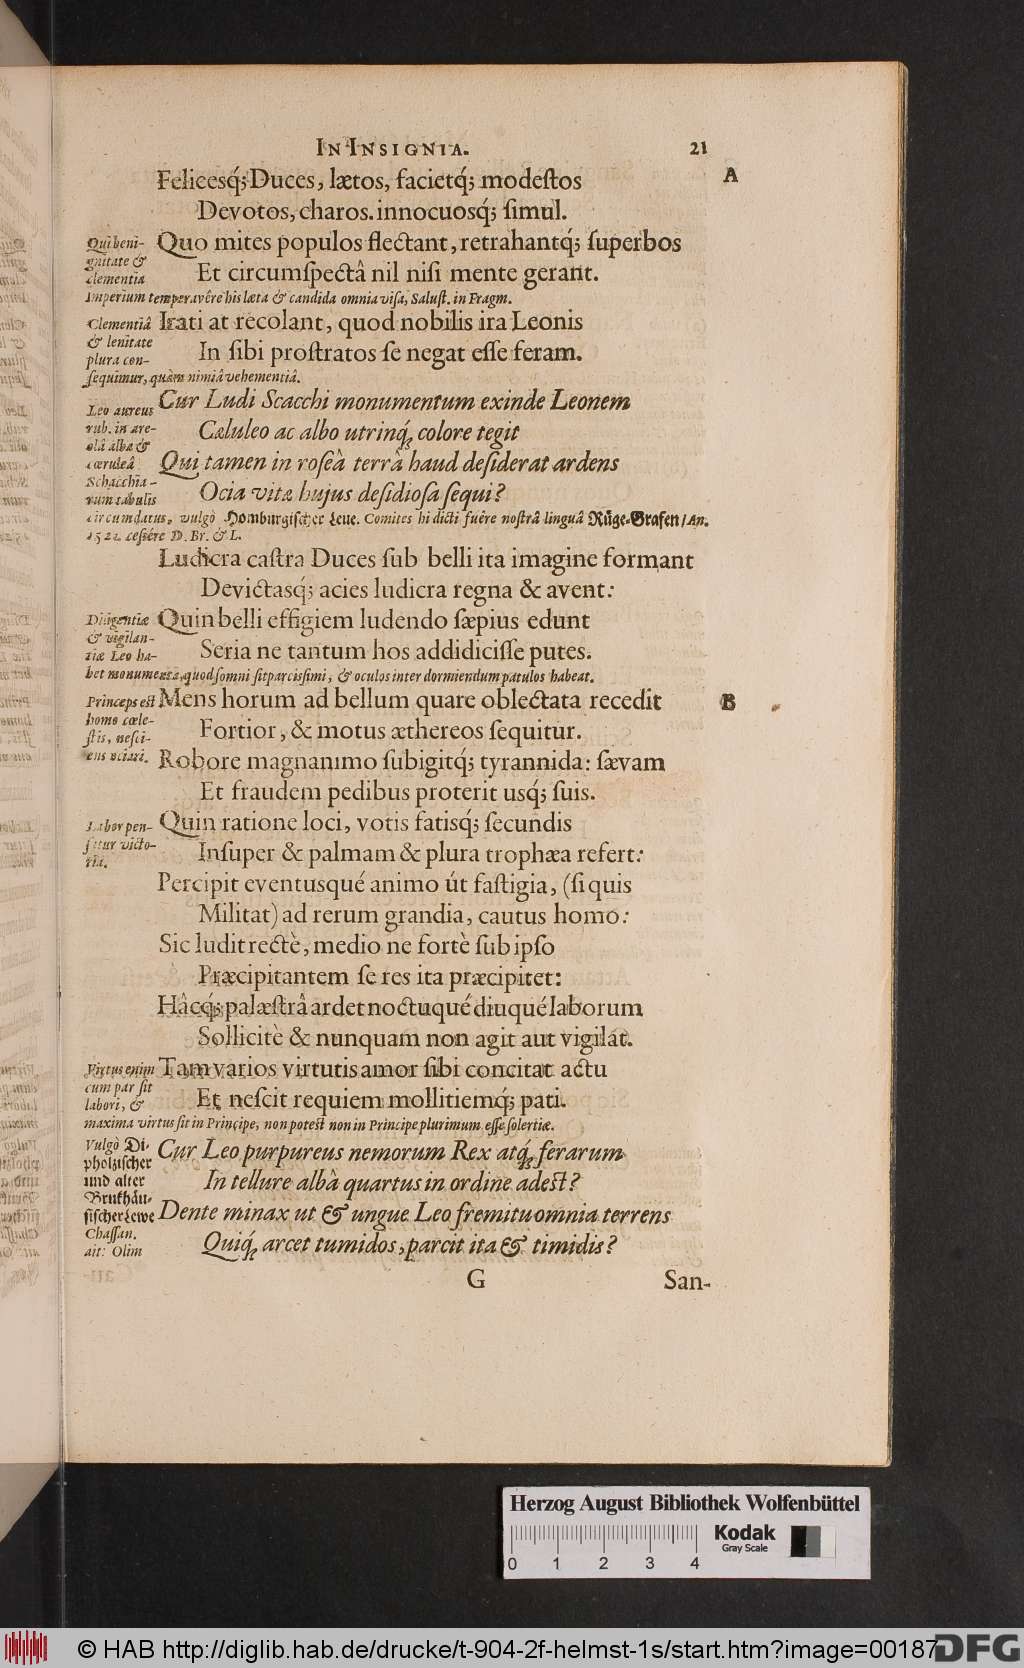 IN INSIGNIA. 21
Felicesq́; Duces, lætos, facietq́; modeſtos A
Devotos, charos. innocuosq́; ſimul.
Qui beni-
gnitate &
clementia
Quo mites populos flectant, retrahantq́; ſuperbos
Et circumſpectâ nil niſi mente gerant.
Imperium temperavêre his læta & candida omnia viſa, Saluſt. in Fragm.
Clementiâ
& lenitate
plura con-
Irati at recolant, quod nobilis ira Leonis
In ſibi proſtratos ſe negat eſſe feram.
ſequimur, quàm nimiâ vehementiâ.
Leo aureus
rub. in are-
olâ albâ &
cœruleâ
Schacchia-
rum tabulis
Cur Ludi Scacchi monumentum exinde Leonem
Cæluleo ac albo utrinq́; colore tegit
Qui tamen in roſeâ terrâ haud deſiderat ardens
Ocia vitæ hujus deſidioſa ſequi?
circumdatus, vulgò Homburgiſcher Leue. Comites hi dicti fuêre noſtrâ linguâ Rüge-Grafen / An.
1522. ceſſére D. Br. & L.
Ludicra caſtra Duces ſub belli ita imagine formant
Devictasq́; acies ludicra regna & avent:
Diligentiæ
& vigilan-
tiæ Leo ha-
Quin belli effigiem ludendo ſæpius edunt
Seria ne tantum hos addidiciſſe putes.
bet monumenta, quod ſomni ſit parciſſimi, & oculos inter dormiendum patulos habeat.
Princeps eſt
homo cœle-
ſtis, neſci-
ens otiari.
Mens horum ad bellum quare oblectata recedit B
Fortior, & motus æthereos ſequitur.
Robore magnanimo ſubigitq́; tyrannida: ſævam
Et fraudem pedibus proterit usq́; ſuis.
Labor pen-
ſitur victo-
ria.
Quin ratione loci, votis fatisq́; ſecundis
Inſuper & palmam & plura trophæa refert:
Percipit eventusqué animo út faſtigia, (ſi quis
Militat) ad rerum grandia, cautus homo:
Sic ludit rectè, medio ne fortè ſub ipſo
Præcipitantem ſe res ita præcipitet:
Hâcq́; palæſtrâ ardet noctuqué diuqué laborum
Sollicitè & nunquam non agit aut vigilat.
Virtus enim
cum par ſit
labori, &
Tam varios virtutis amor ſibi concitat actu
Et neſcit requiem mollitiemq́; pati.
maxima virtus ſit in Principe, non poteſt non in Principe plurimum eſſe ſolertiæ.
Vulgò Di-
pholziſcher
und alter
Brukhäu-
ſiſcher Lewe
Chaſſan.
ait: Olim
Cur Leo purpureus nemorum Rex atq́; ferarum
In tellure albâ quartus in ordine adeſt?
Dente minax ut & ungue Leo fremitu omnia terrens
Quiq́; arcet tumidos, parcit ita & timidis?
G San-
Herzog August Bibliothek Wolfenbüttel
Kodak
Gray Scale
0 1 2 3 4
© HAB http://diglib.hab.de/drucke/t-904-2f-helmst-1s/start.htm?image=00187
DFG